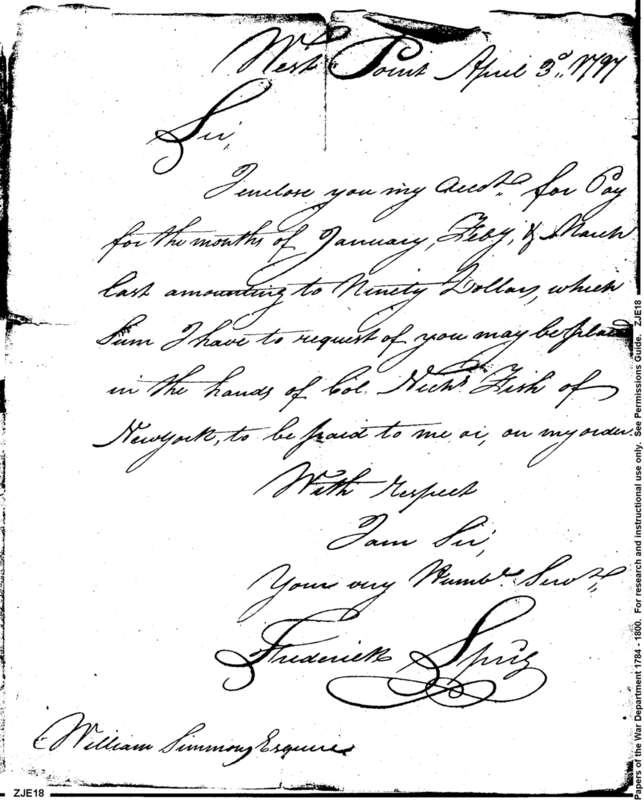 West Point April 3d. 1797
Sir,
I enclose you my Accot. for Pay
for the months of January, Feby, & March
last amounting to Ninety Dollars, which
Sum I have to request of you may be placed
in the hands of Col. Nichs. Fish of
Newyork, to be paid to me or, on my order.
With respect
I am Sir,
Your very Humbe. Servt.,
Frederick
William Simmons Esquire
ZJE18
Papers of the War Department 1784 - 1800. For research and instructional use only. See Permissions Guide. ZJE18